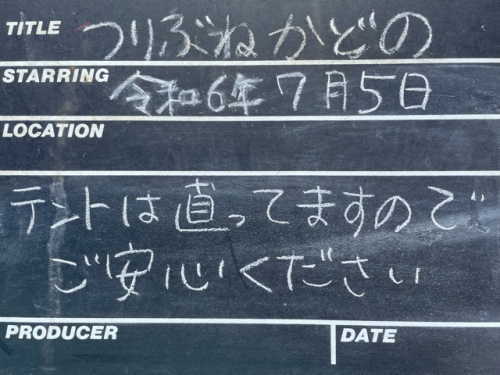 TITLE つりぶねかどの
STARRING 令和6年7月5日
LOCATION
テントは直ってますので
ご安心ください
PRODUCER DATE